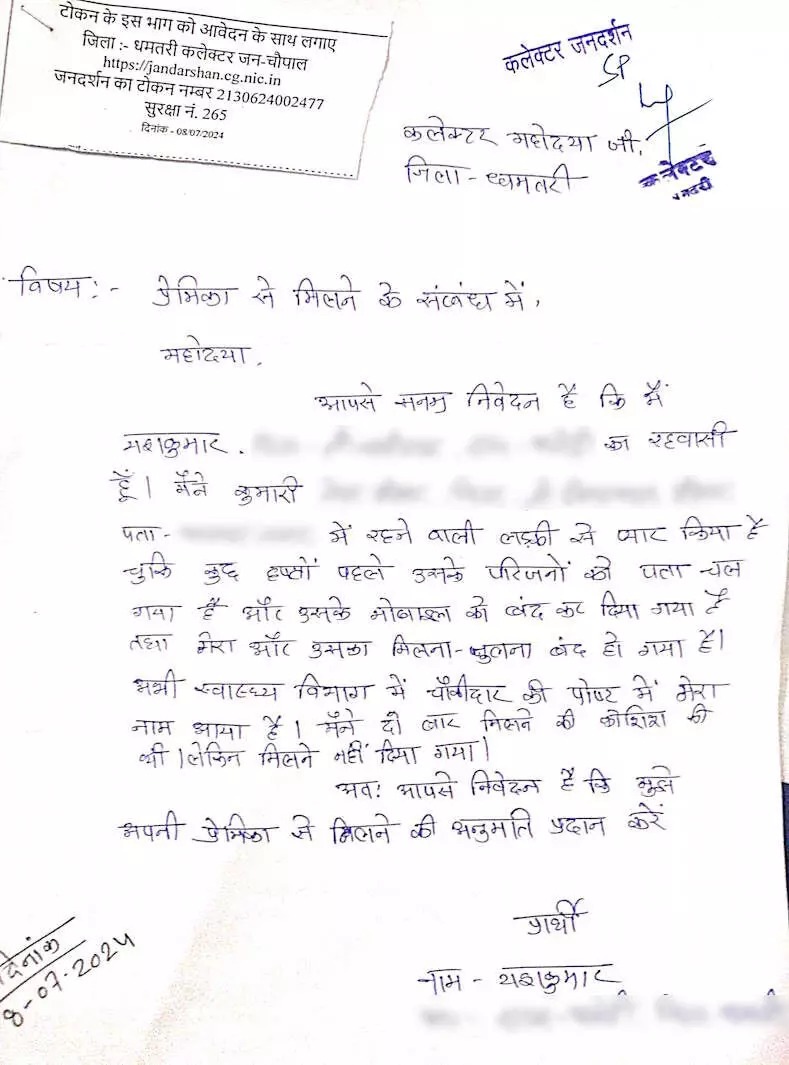 टोकन के इस भाग को आवेदन के साथ लगाए
जिला :- धमतरी कलेक्टर जन-चौपाल
https://jandarshan.cg.nic.in
जनदर्शन का टोकन नम्बर 2130624002477
सुरक्षा नं. 265
दिनांक - 08/07/2024
कलेक्टर जनदर्शन
SP
कलेक्टर महोदया जी,
जिला - धमतरी
कलेक्टर
विषय :- प्रेमिका से मिलने के संबंध में,
महोदया,
आपसे सनम्र निवेदन है कि मैं
यशकुमार, का रहवासी
हूँ। मैंने कुमारी
पता- में रहने वाली लड़की से प्यार किया है
चुकि कुछ हफ्तों पहले उसके परिजनों को पता चल
गया है और उसके मोबाइल को बंद कर दिया गया है
तथा मेरा और उसका मिलना-जुलना बंद हो गया है।
अभी स्वास्थ्य विभाग में चौकीदार की पोस्ट में मेरा
नाम आया है। मैंने दो बार मिलने की कोशिश की
थी। लेकिन मिलने नहीं दिया गया।
अतः आपसे निवेदन है कि मुझे
अपनी प्रेमिका से मिलने की अनुमति प्रदान करें
प्रार्थी
नाम - यशकुमार
दिनांक
8-07-2024